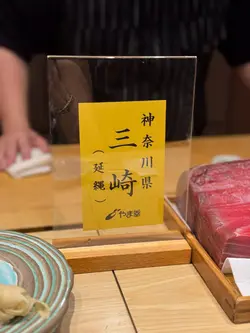 神奈川県
三崎
（延縄）
やま幸